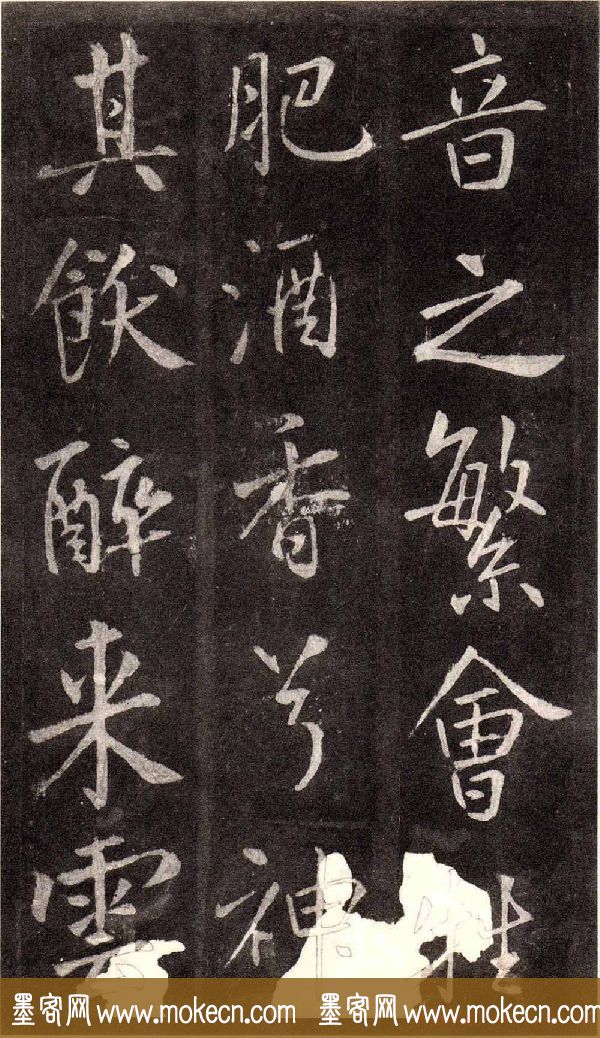 音之繁會牲
肥酒香兮神
其飫醉来雲
墨客网 www.mokecn.com 墨客网 www.mokecn.com